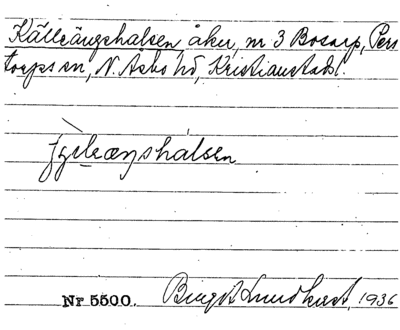 Källeängehalsen, åker, nr 3 Bosarp, Pers
torps sn, N. Åsbo hd, Kristianstads l.
Nr 5500. Birgit Lundkvist, 1936